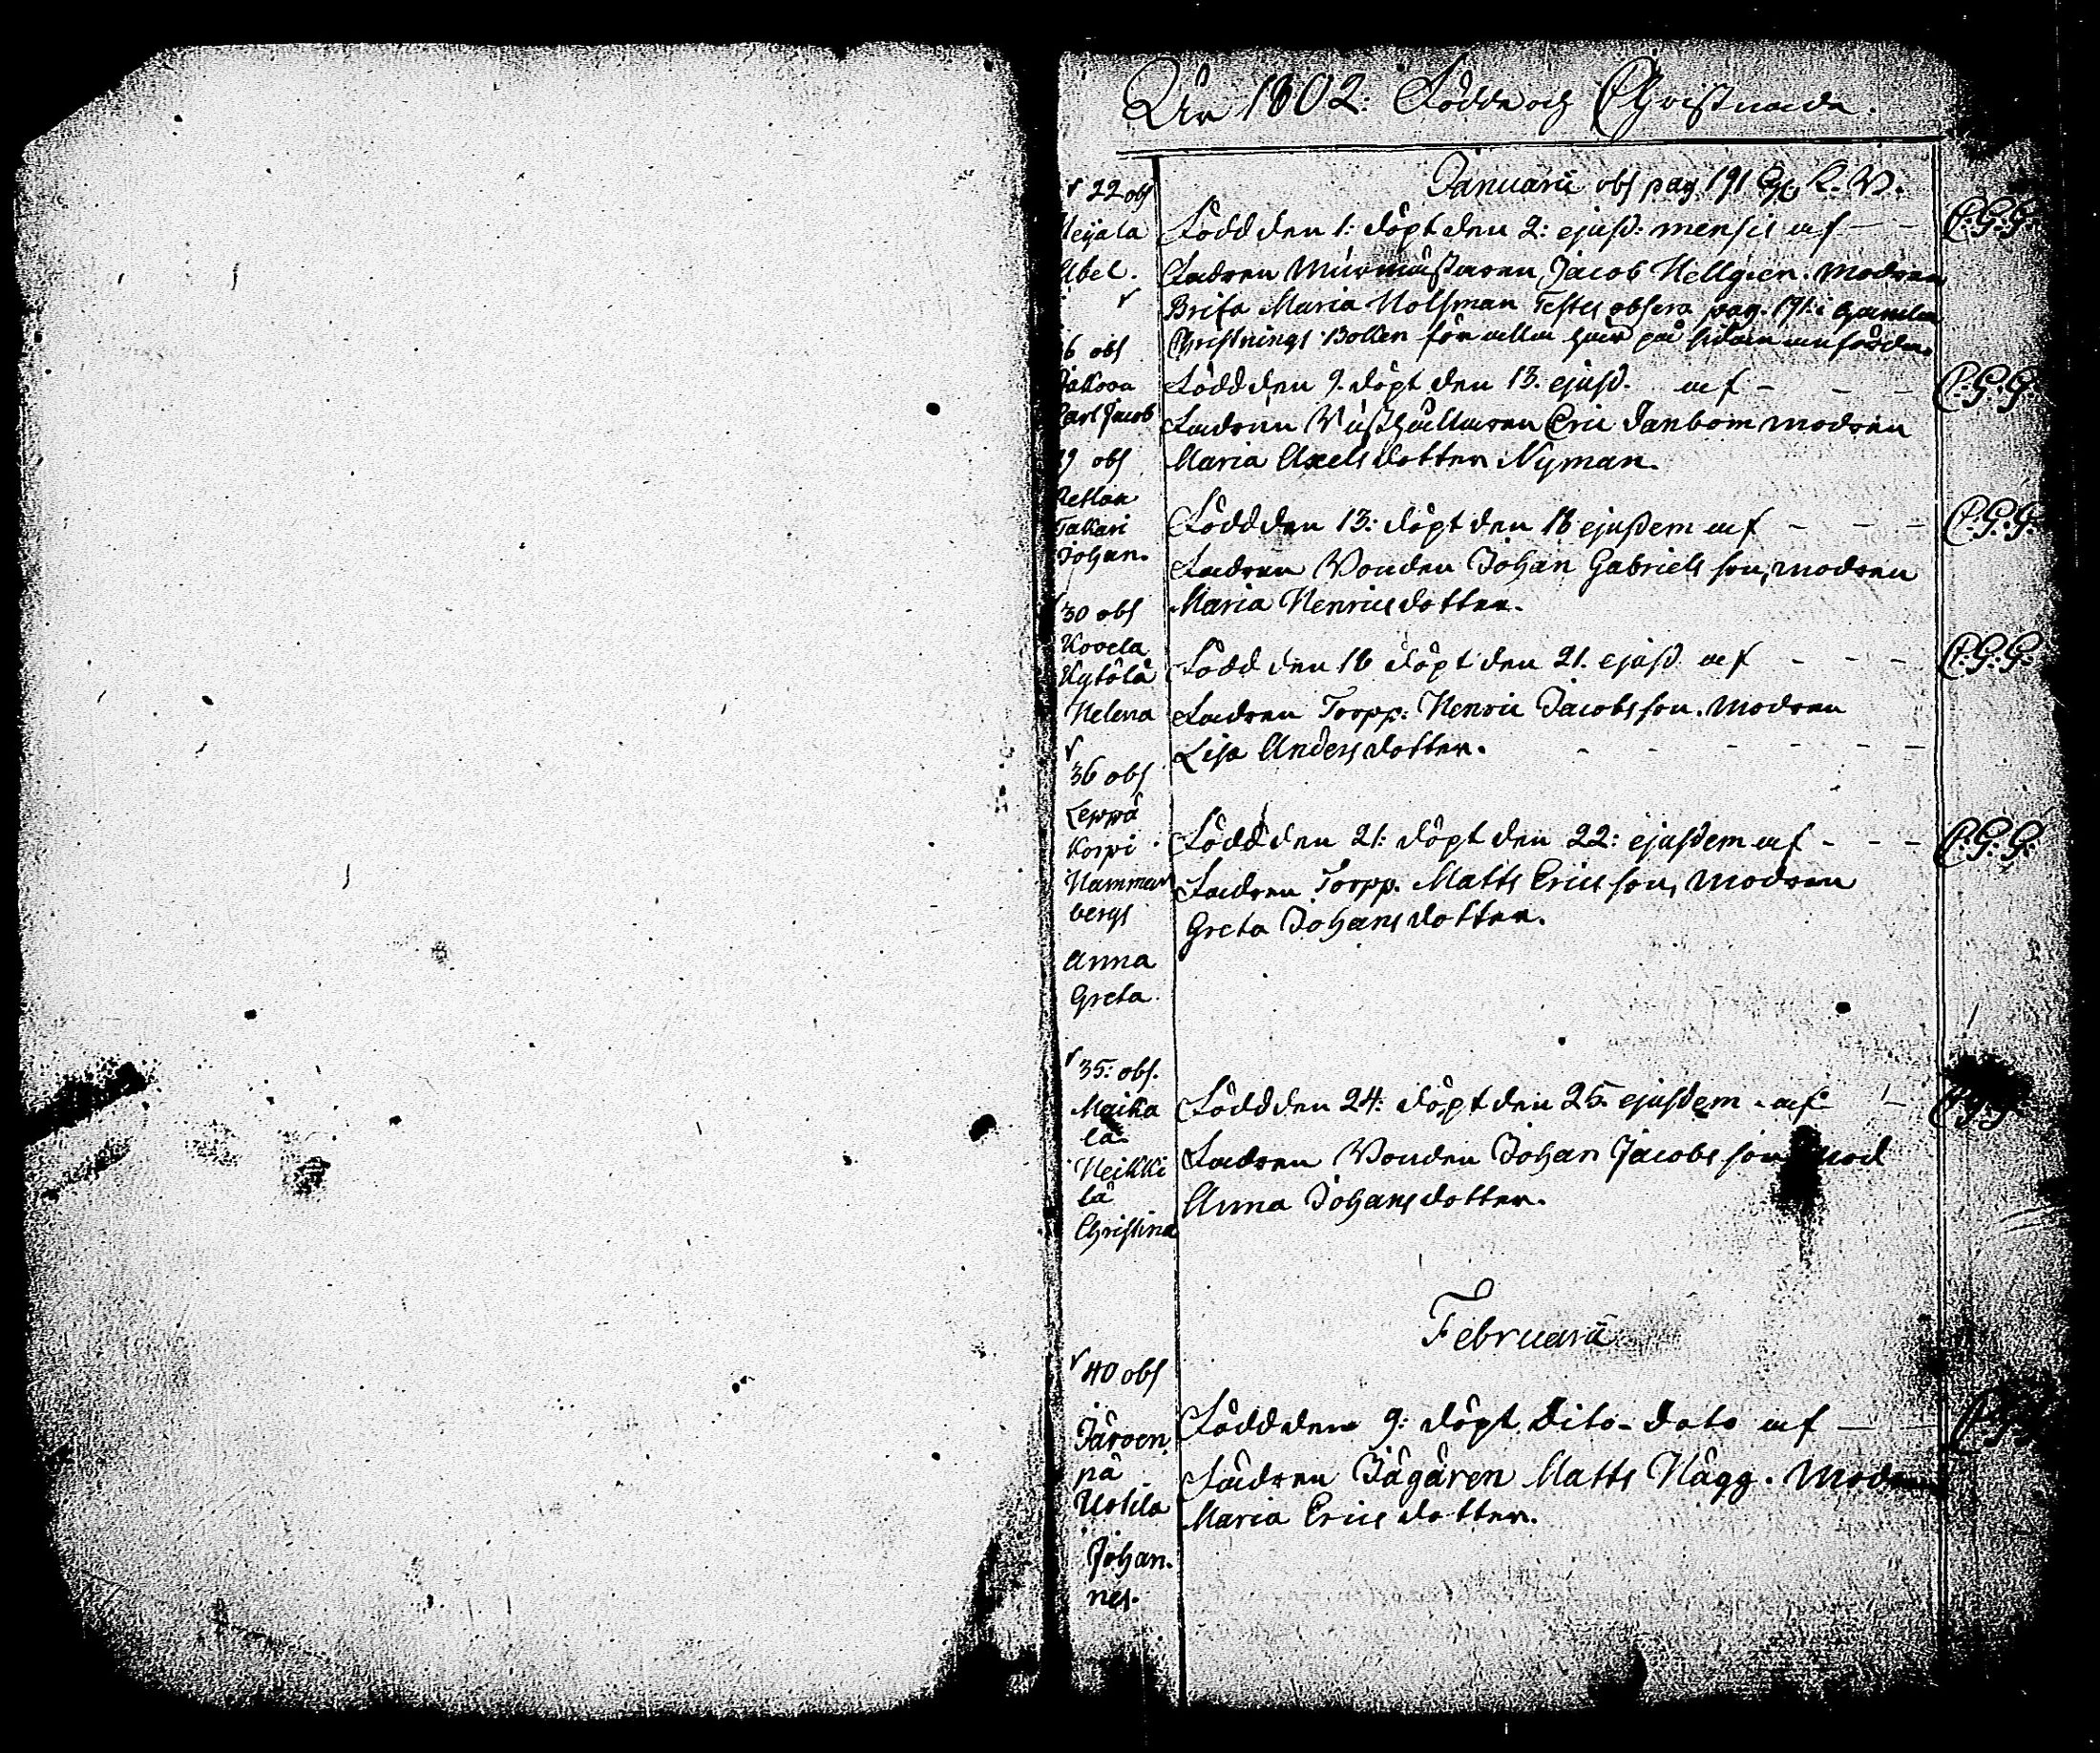 År 1802: Födde och Christnade.
Januarii obs pag 191
22 obs
Född den 1: döpt den 2: ejusd: mensis af — — C:G:G:
Heijala
Abel.
Fadren Murmästaren Jacob Hellgren. Modren
Brita Maria Holsman Testes observa pag. 191: i gamla
Christnings Boken för alla här på sidan anförda.
6 obs
Carl Jacob
Född den 9. döpt den 13. ejusd. af - - - C:G:G:
Fadren Eric Janbom modren
Maria Axelsdotter Nyman.
19 obs
Takari
Johan.
Född den 13: döpt den 18 ejusdem af - - - C:G:G:
Fadren Bonden Johan Gabriels son, modren
Maria Henricsdotter.
30 obs
Kovela
Kytölä
Helena
Född den 16 döpt den 21. ejusd. af - - - C:G:G:
Fadren Torpp: Henric Jacobsson. modren
Lisa Andersdotter. - - - - - - -
36 obs
Leppä
Korpi
Hammar
bergs
Anna
Greta.
Född den 21: döpt den 22: ejusdem af - - - C:G:G:
Fadren Torpp. Matts Ericsson, modren
Greta Johansdotter.
35: obs.
Maika
la
Heikki
lä
Christina
Född den 24: döpt den 25. ejusdem af
Fadren Bonden Johan Jacobsson mod
Anna Johansdotter.
Februarii
40 obs
Järven
pä
Uotila
Johan.
nes.
Född den 9: döpt Dito-Dato af —
Fadren Jägären Matts Hägg. Modren
Maria Ericsdotter.